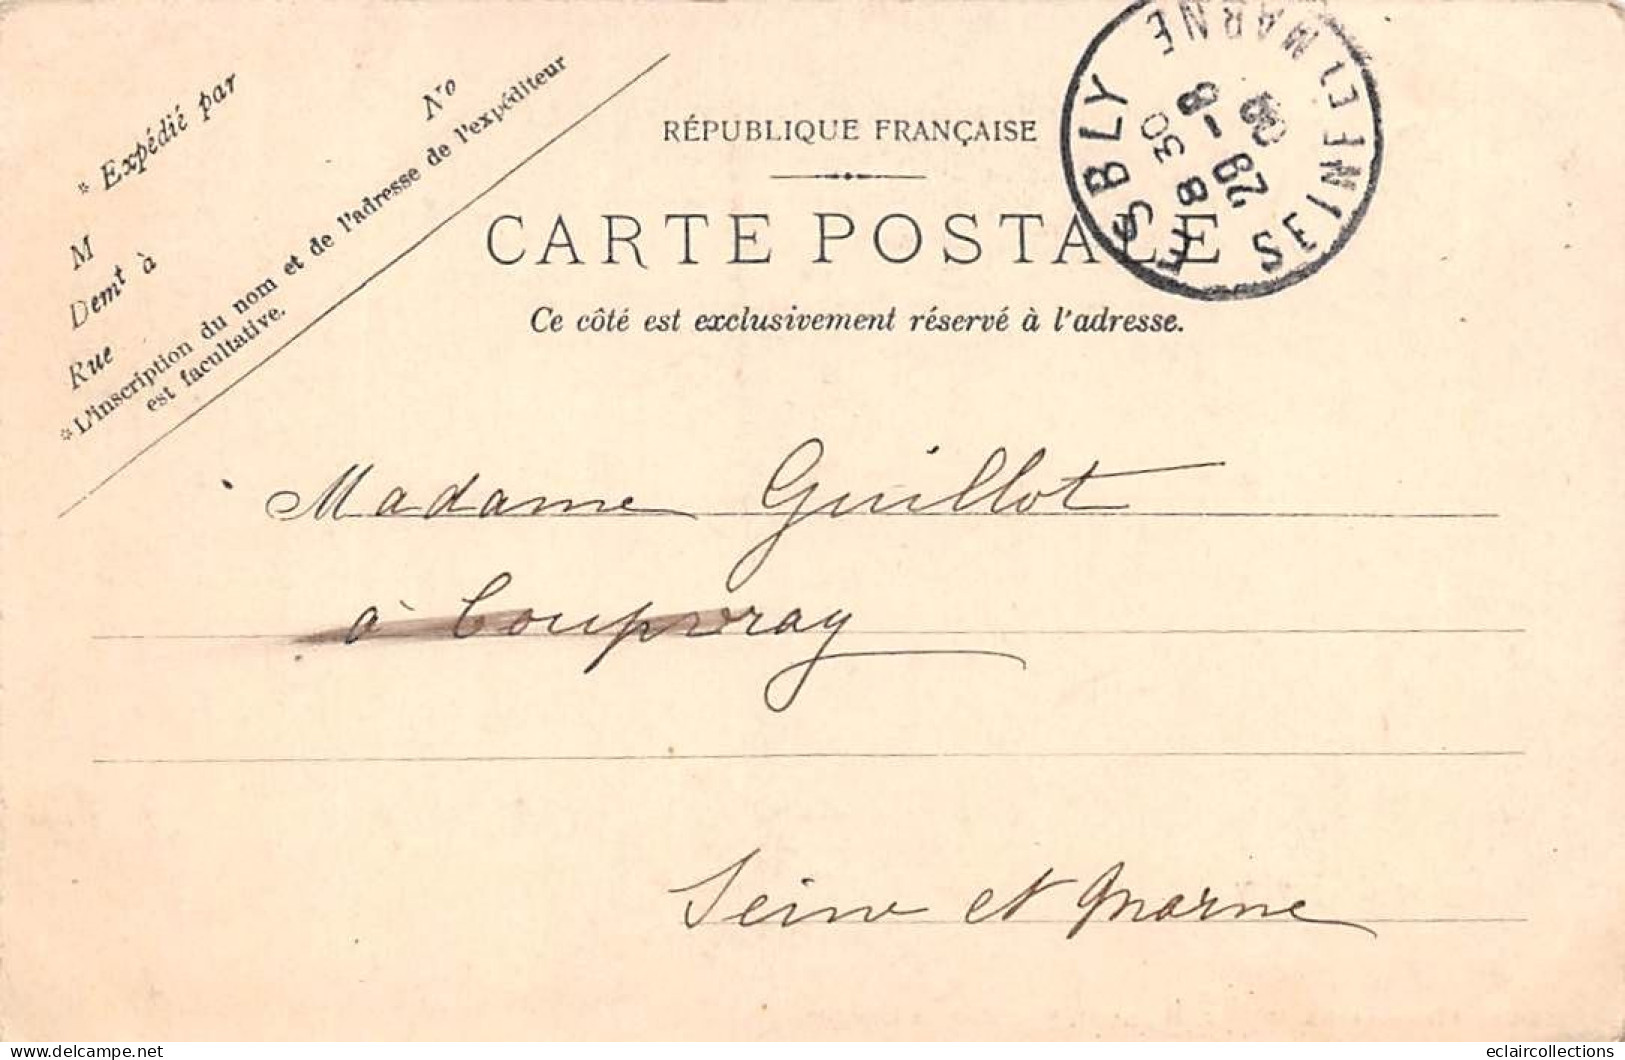 * Expédié par
No
M
Demt à
Rue
*L'inscription du nom et de l'adresse de l'expéditeur
est facultative.
RÉPUBLIQUE FRANÇAISE
CARTE POSTALE
Ce côté est exclusivement réservé à l'adresse.
ESBLY
SEINE ET MARNE
8 30
29 - 8
Madame Guillot
à Coupvray
Seine et Marne
eclaircollections